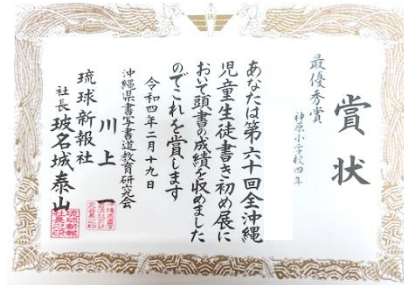 賞状
最優秀賞
神原小学校四年
あなたは第六十回全沖縄
児童生徒書き初め展に
おいて頭書の成績を収めました
のでこれを賞します
令和四年二月十九日
沖縄県書写書道教育研究会
川上一
琉球新報社
社長 玻名城泰山